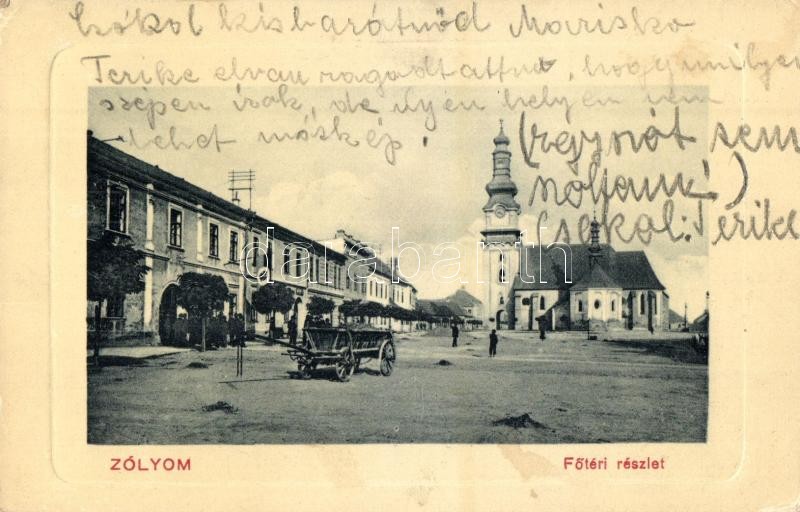 Csókol kisbarátnőd Mariska
Terike elvan ragadtattva, hogy milyen
szépen írok, de ilyen helyen nem
lehet máskép!
(regynát sem
noltam!)
Csókol: Terike
darabanth
ZÓLYOM
Főtéri részlet